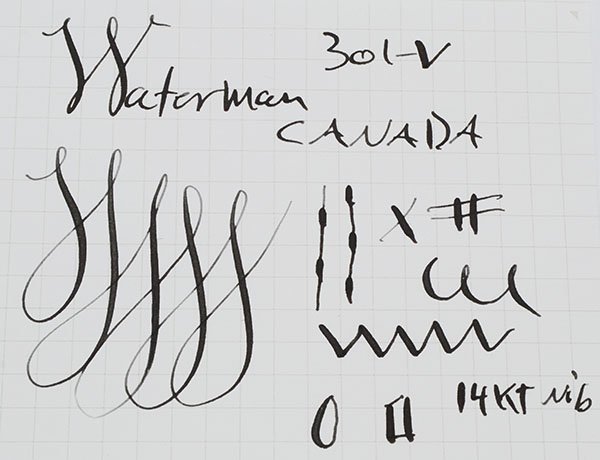 Waterman
301-V
CANADA
X #
14KT Nib